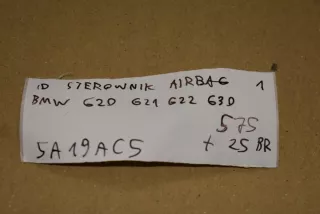 ID STEROWNIK AIRBAG 1
BMW G20 G21 G22 G30
575
5A19AC5 + 25 BR